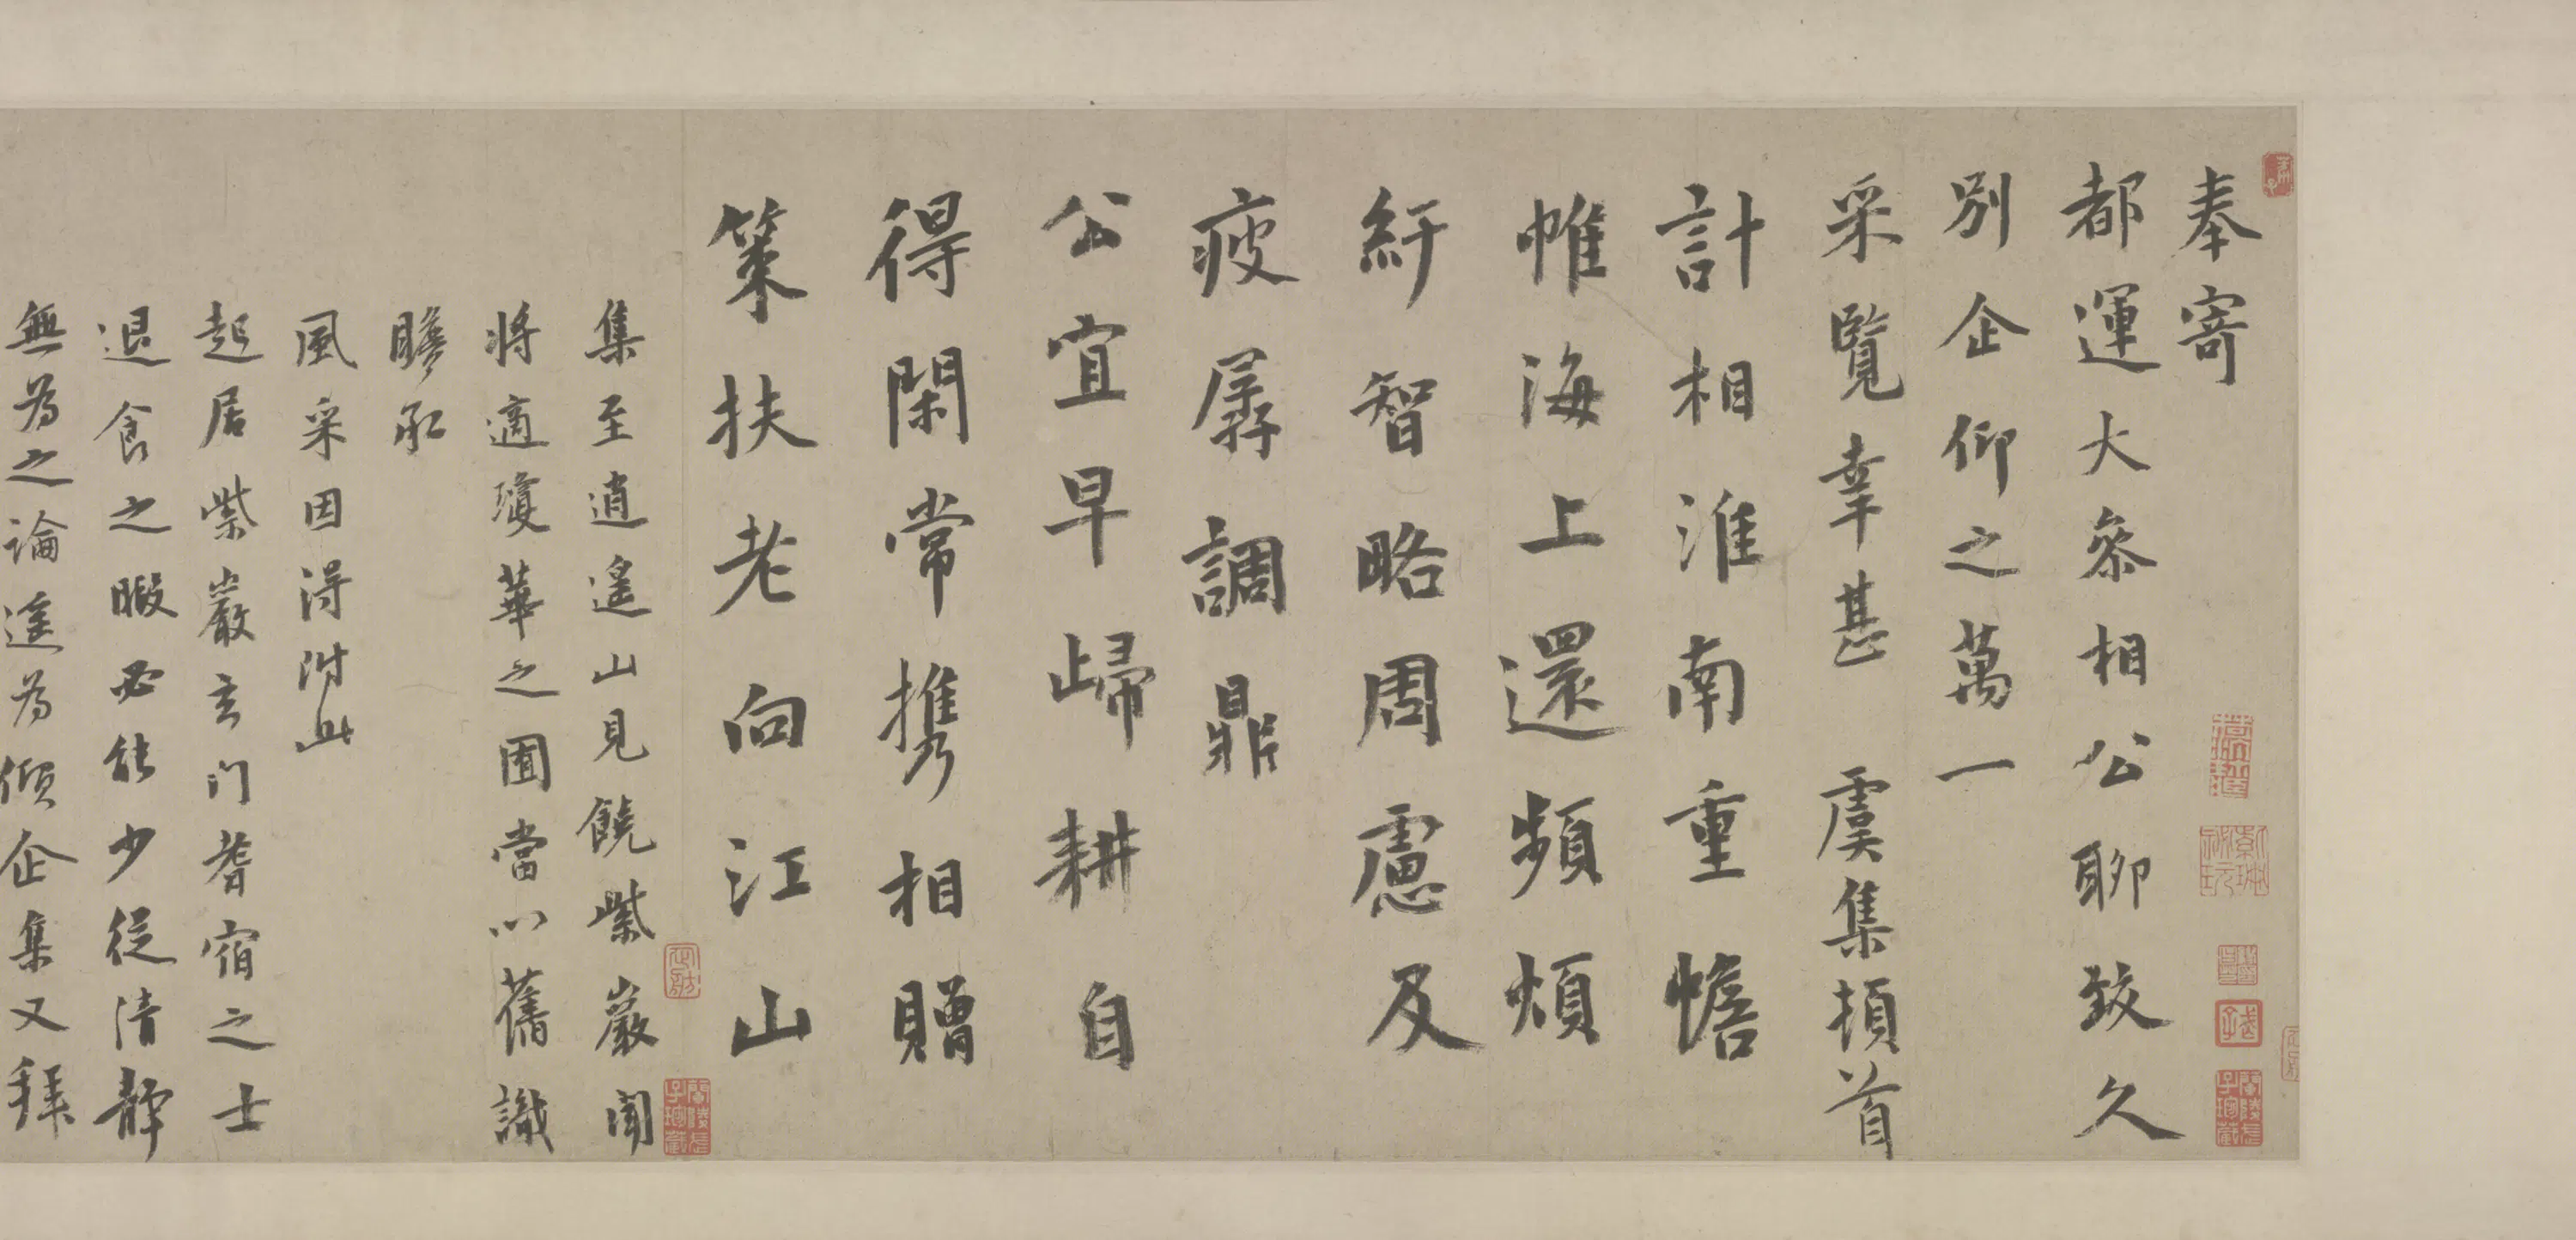 奉寄
都運大參相公聊致久
別企仰之萬一
采覽幸甚 虞集頓首
計相淮南重幨
帷海上還頻煩
紆智略周慮及
疲孱調鼎
公宜早歸耕自
得閑常携相贈
策扶老向江山
集至逍遙山見饒紫巖聞
將適瓊華之圃當以舊識
瞻承
風采因得附此
起居紫巖玄门耆宿之士
退食之暇必能少從清靜
無為之論遙為傾企集又拜